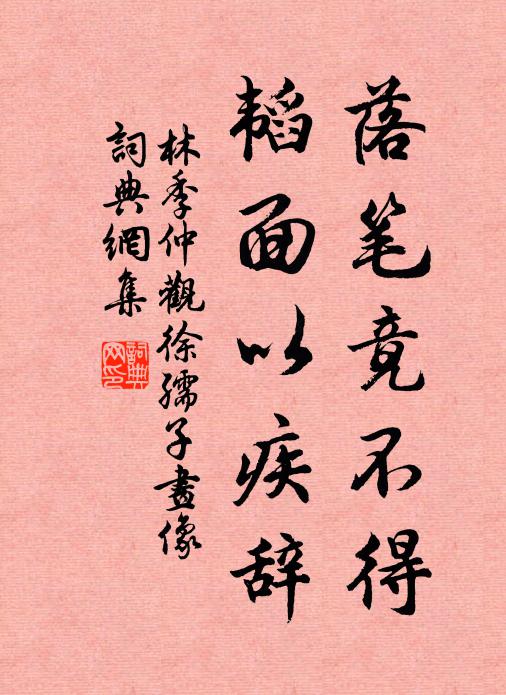 落笔竟不得
韬面以疾辞
林季仲觀徐孺子畫像
詞典網集
詞典網印